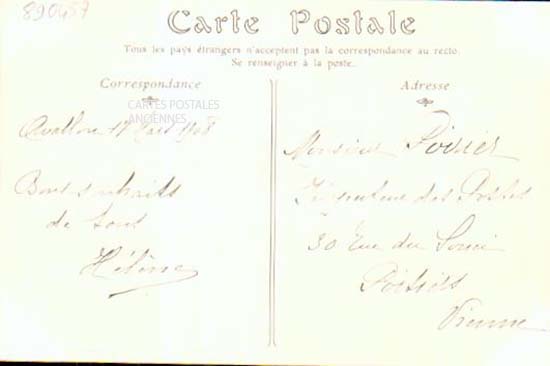 890457
Carte Postale
Tous les pays étrangers n'acceptent pas la correspondance au recto.
Se renseigner à la poste.
Correspondance
CARTES POSTALES
ANCIENNES
Avallon 17 1908
Bons souhaits
de tous
Hélène
Adresse
Monsieur Poirier
des Postes
30 Rue du
Poitiers
Vienne